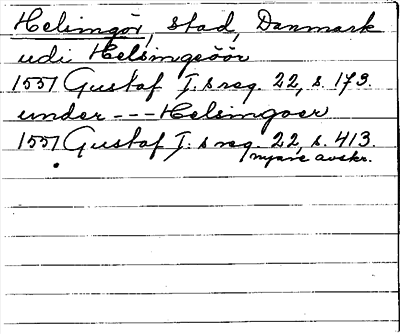 Helsingör, stad, Danmark
udi Helsingeöör
1551 Gustaf I.s reg. 22, s. 173.
under --- Helsingoer
1551 Gustaf I.s reg. 22, s. 413.
nyare avskr.